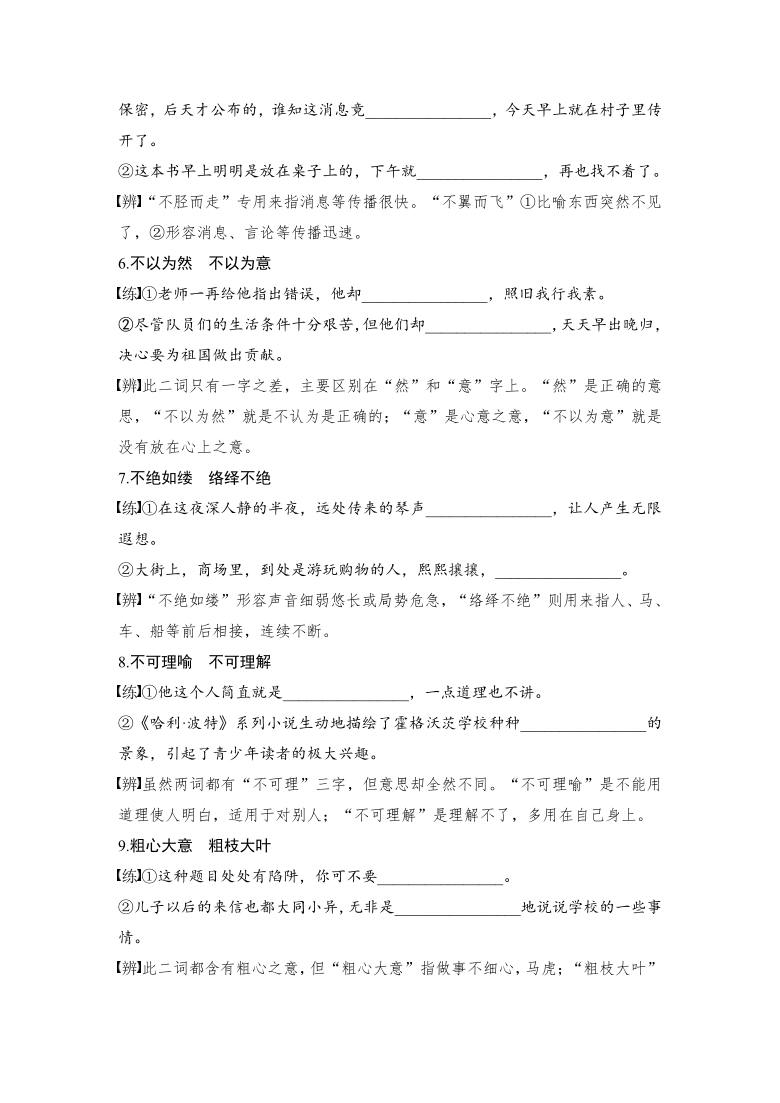 保密，后天才公布的，谁知这消息竟________________，今天早上就在村子里传
开了。
②这本书早上明明是放在桌子上的，下午就________________，再也找不着了。
【辨】“不胫而走”专用来指消息等传播很快。“不翼而飞”①比喻东西突然不见
了，②形容消息、言论等传播迅速。
6.不以为然　不以为意
【练】①老师一再给他指出错误，他却________________，照旧我行我素。
②尽管队员们的生活条件十分艰苦，但他们却________________，天天早出晚归，
决心要为祖国做出贡献。
【辨】此二词只有一字之差，主要区别在“然”和“意”字上。“然”是正确的意
思，“不以为然”就是不认为是正确的；“意”是心意之意，“不以为意”就是
没有放在心上之意。
7.不绝如缕　络绎不绝
【练】①在这夜深人静的半夜，远处传来的琴声________________，让人产生无限
遐想。
②大街上，商场里，到处是游玩购物的人，熙熙攘攘，________________。
【辨】“不绝如缕”形容声音细弱悠长或局势危急，“络绎不绝”则用来指人、马、
车、船等前后相接，连续不断。
8.不可理喻　不可理解
【练】①他这个人简直就是________________，一点道理也不讲。
②《哈利·波特》系列小说生动地描绘了霍格沃茨学校种种________________的
景象，引起了青少年读者的极大兴趣。
【辨】虽然两词都有“不可理”三字，但意思却全然不同。“不可理喻”是不能用
道理使人明白，适用于对别人；“不可理解”是理解不了，多用在自己身上。
9.粗心大意　粗枝大叶
【练】①这种题目处处有陷阱，你可不要________________。
②儿子以后的来信也都大同小异，无非是________________地说说学校的一些事
情。
【辨】此二词都含有粗心之意，但“粗心大意”指做事不细心，马虎；“粗枝大叶”